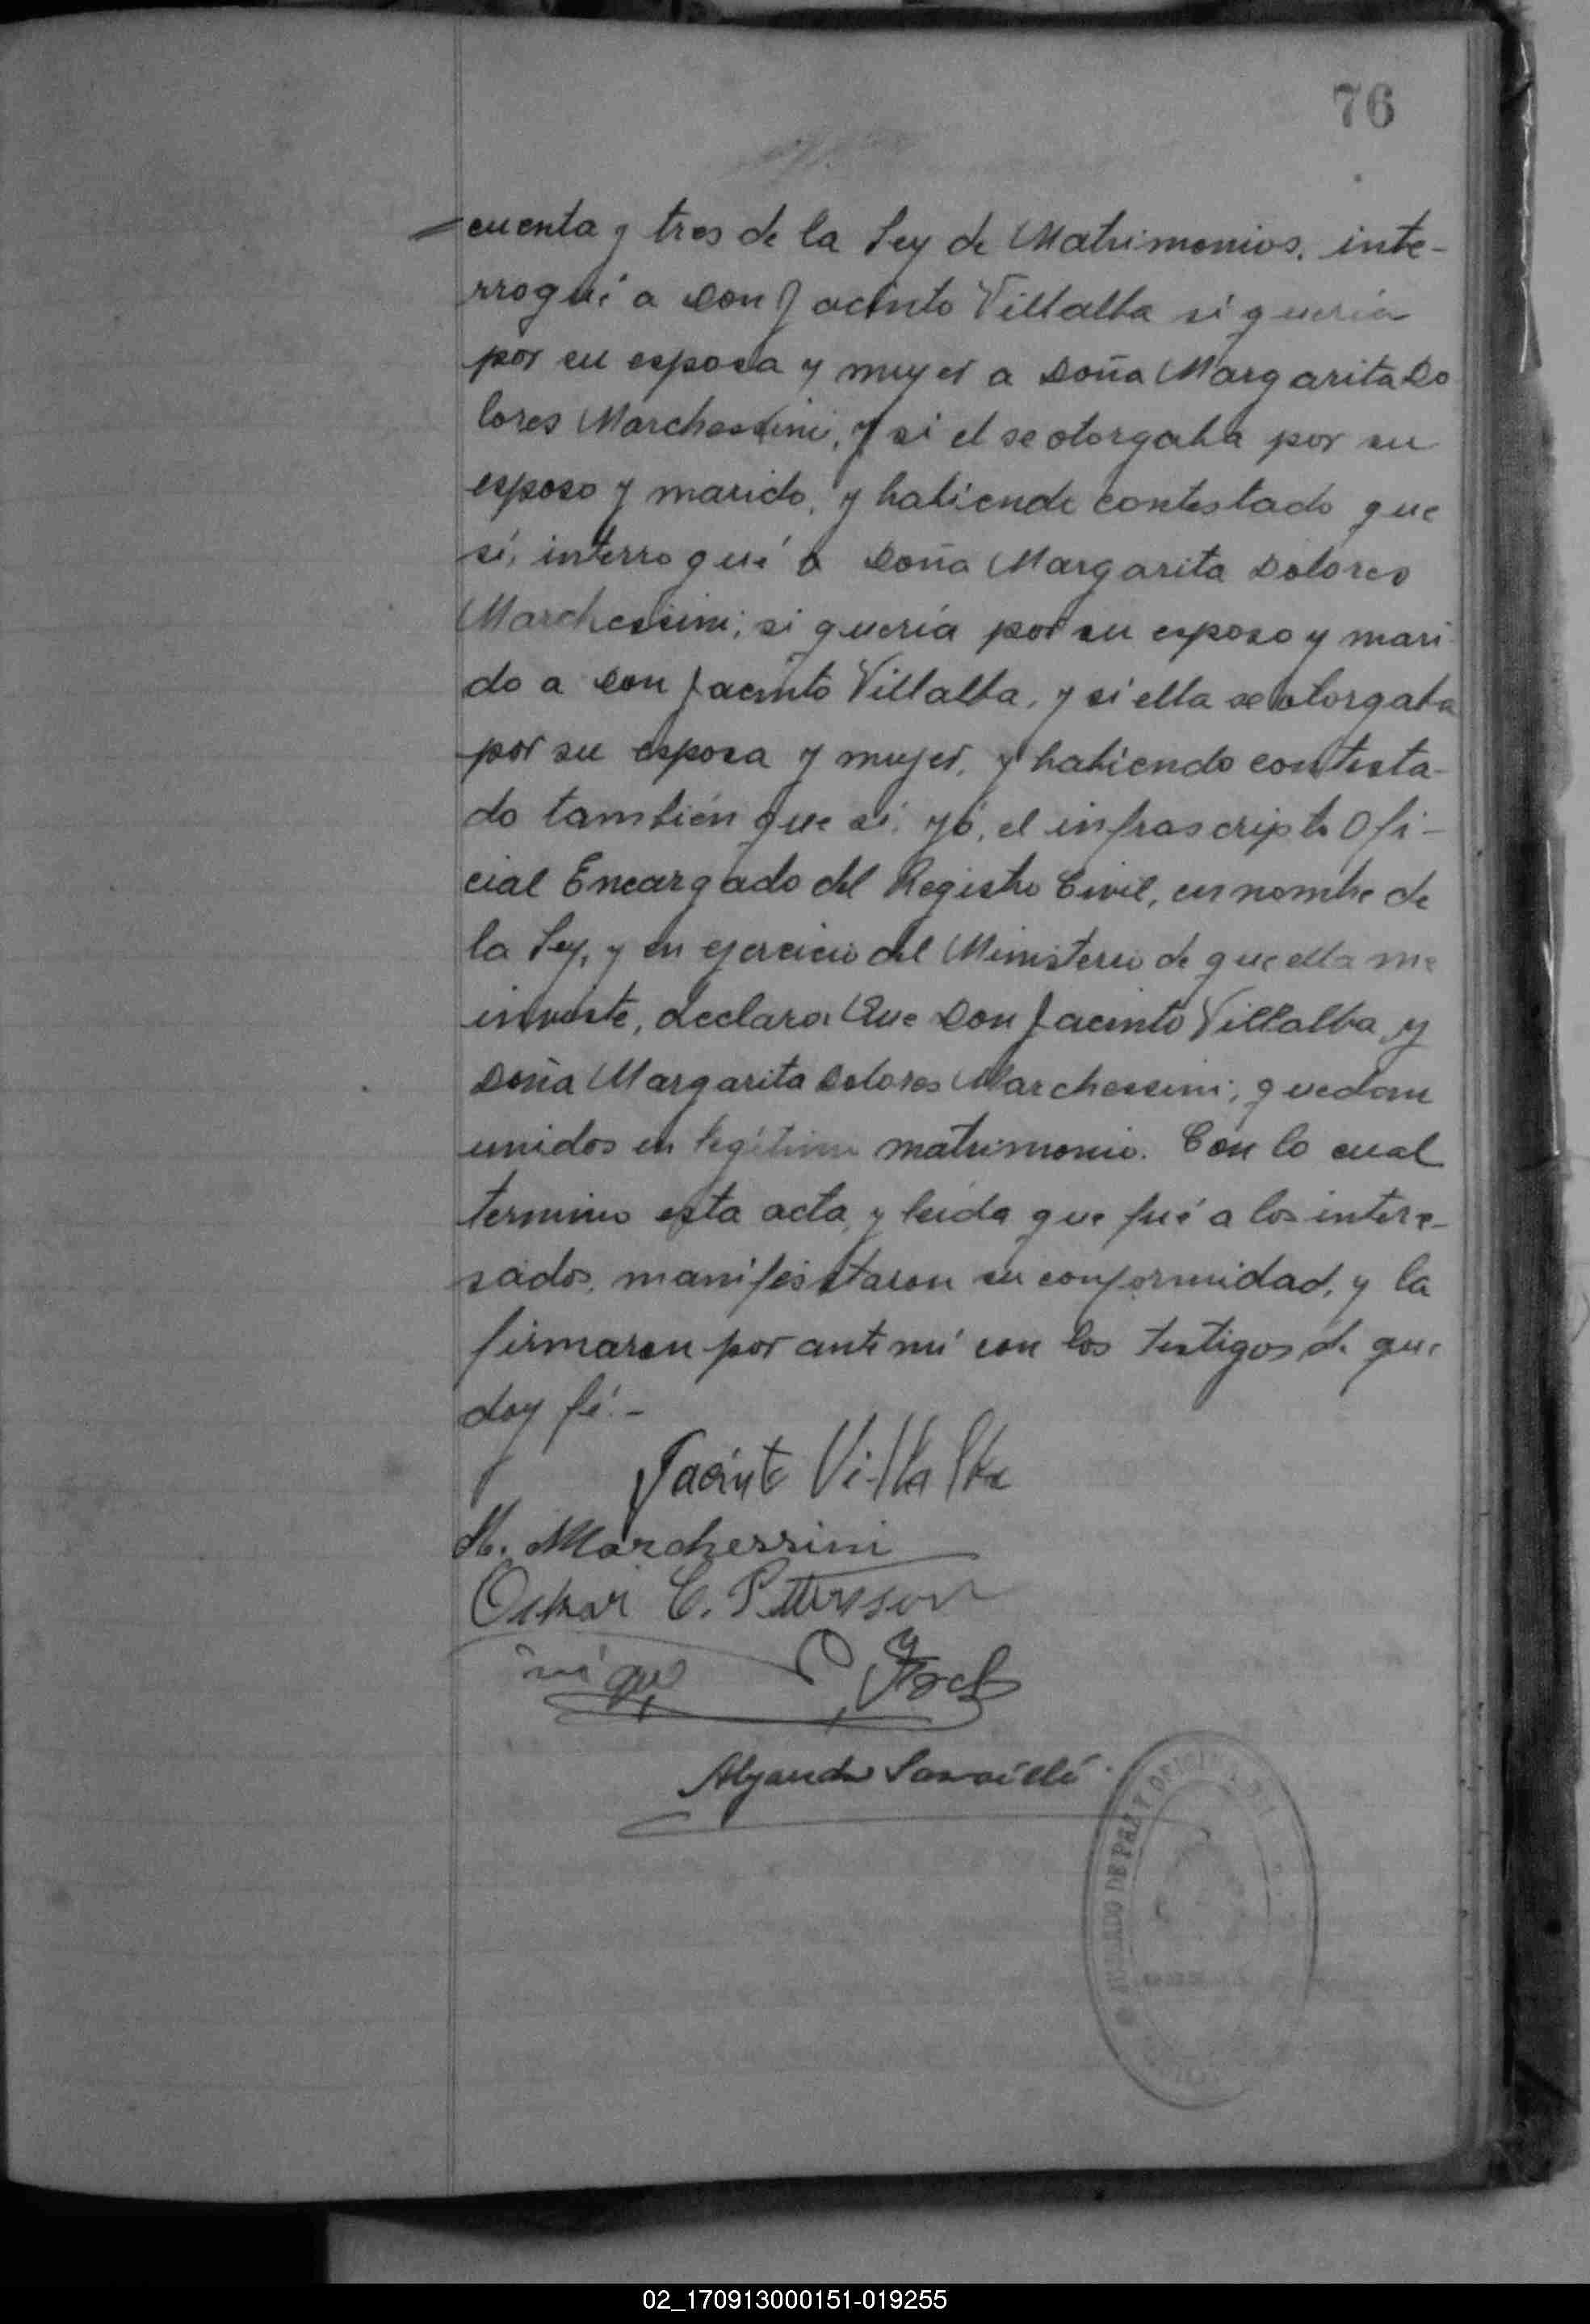 76
=cuenta y tres de la Ley de Matrimonios, inte-
rrogué a Don Jacinto Villalba si quería
por su esposa y mujer a Doña Margarita Do
lores Marchessini, y si el se otorgaba por su
esposo y marido, y habiendo contestado que
sí, interrogué a Doña Margarita Dolores
Marchessini, si quería por su esposo y mari
do a Don Jacinto Villalba, y si ella se otorgaba
por su esposa y mujer, y habiendo contesta-
do también que sí, yó, el infrascripto Ofi-
cial Encargado del Registro Civil, en nombre de
la Ley, y en ejercicio del Ministerio de que ella me
inviste, declaro: Que Don Jacinto Villalba y
Doña Margarita Dolores Marchessini, quedan
unidos en legítimo matrimonio. Con lo cual
termino esta acta, y leída que fué a los intere-
sados, manifestaron su conformidad, y la
firmaron por ante mí con los testigos de que
doy fé.-
Jacinto Villalba
M. Marchessini
Oskar C. Pettersson
Alejandro
JUZGADO DE PAZ Y
02_170913000151-019255